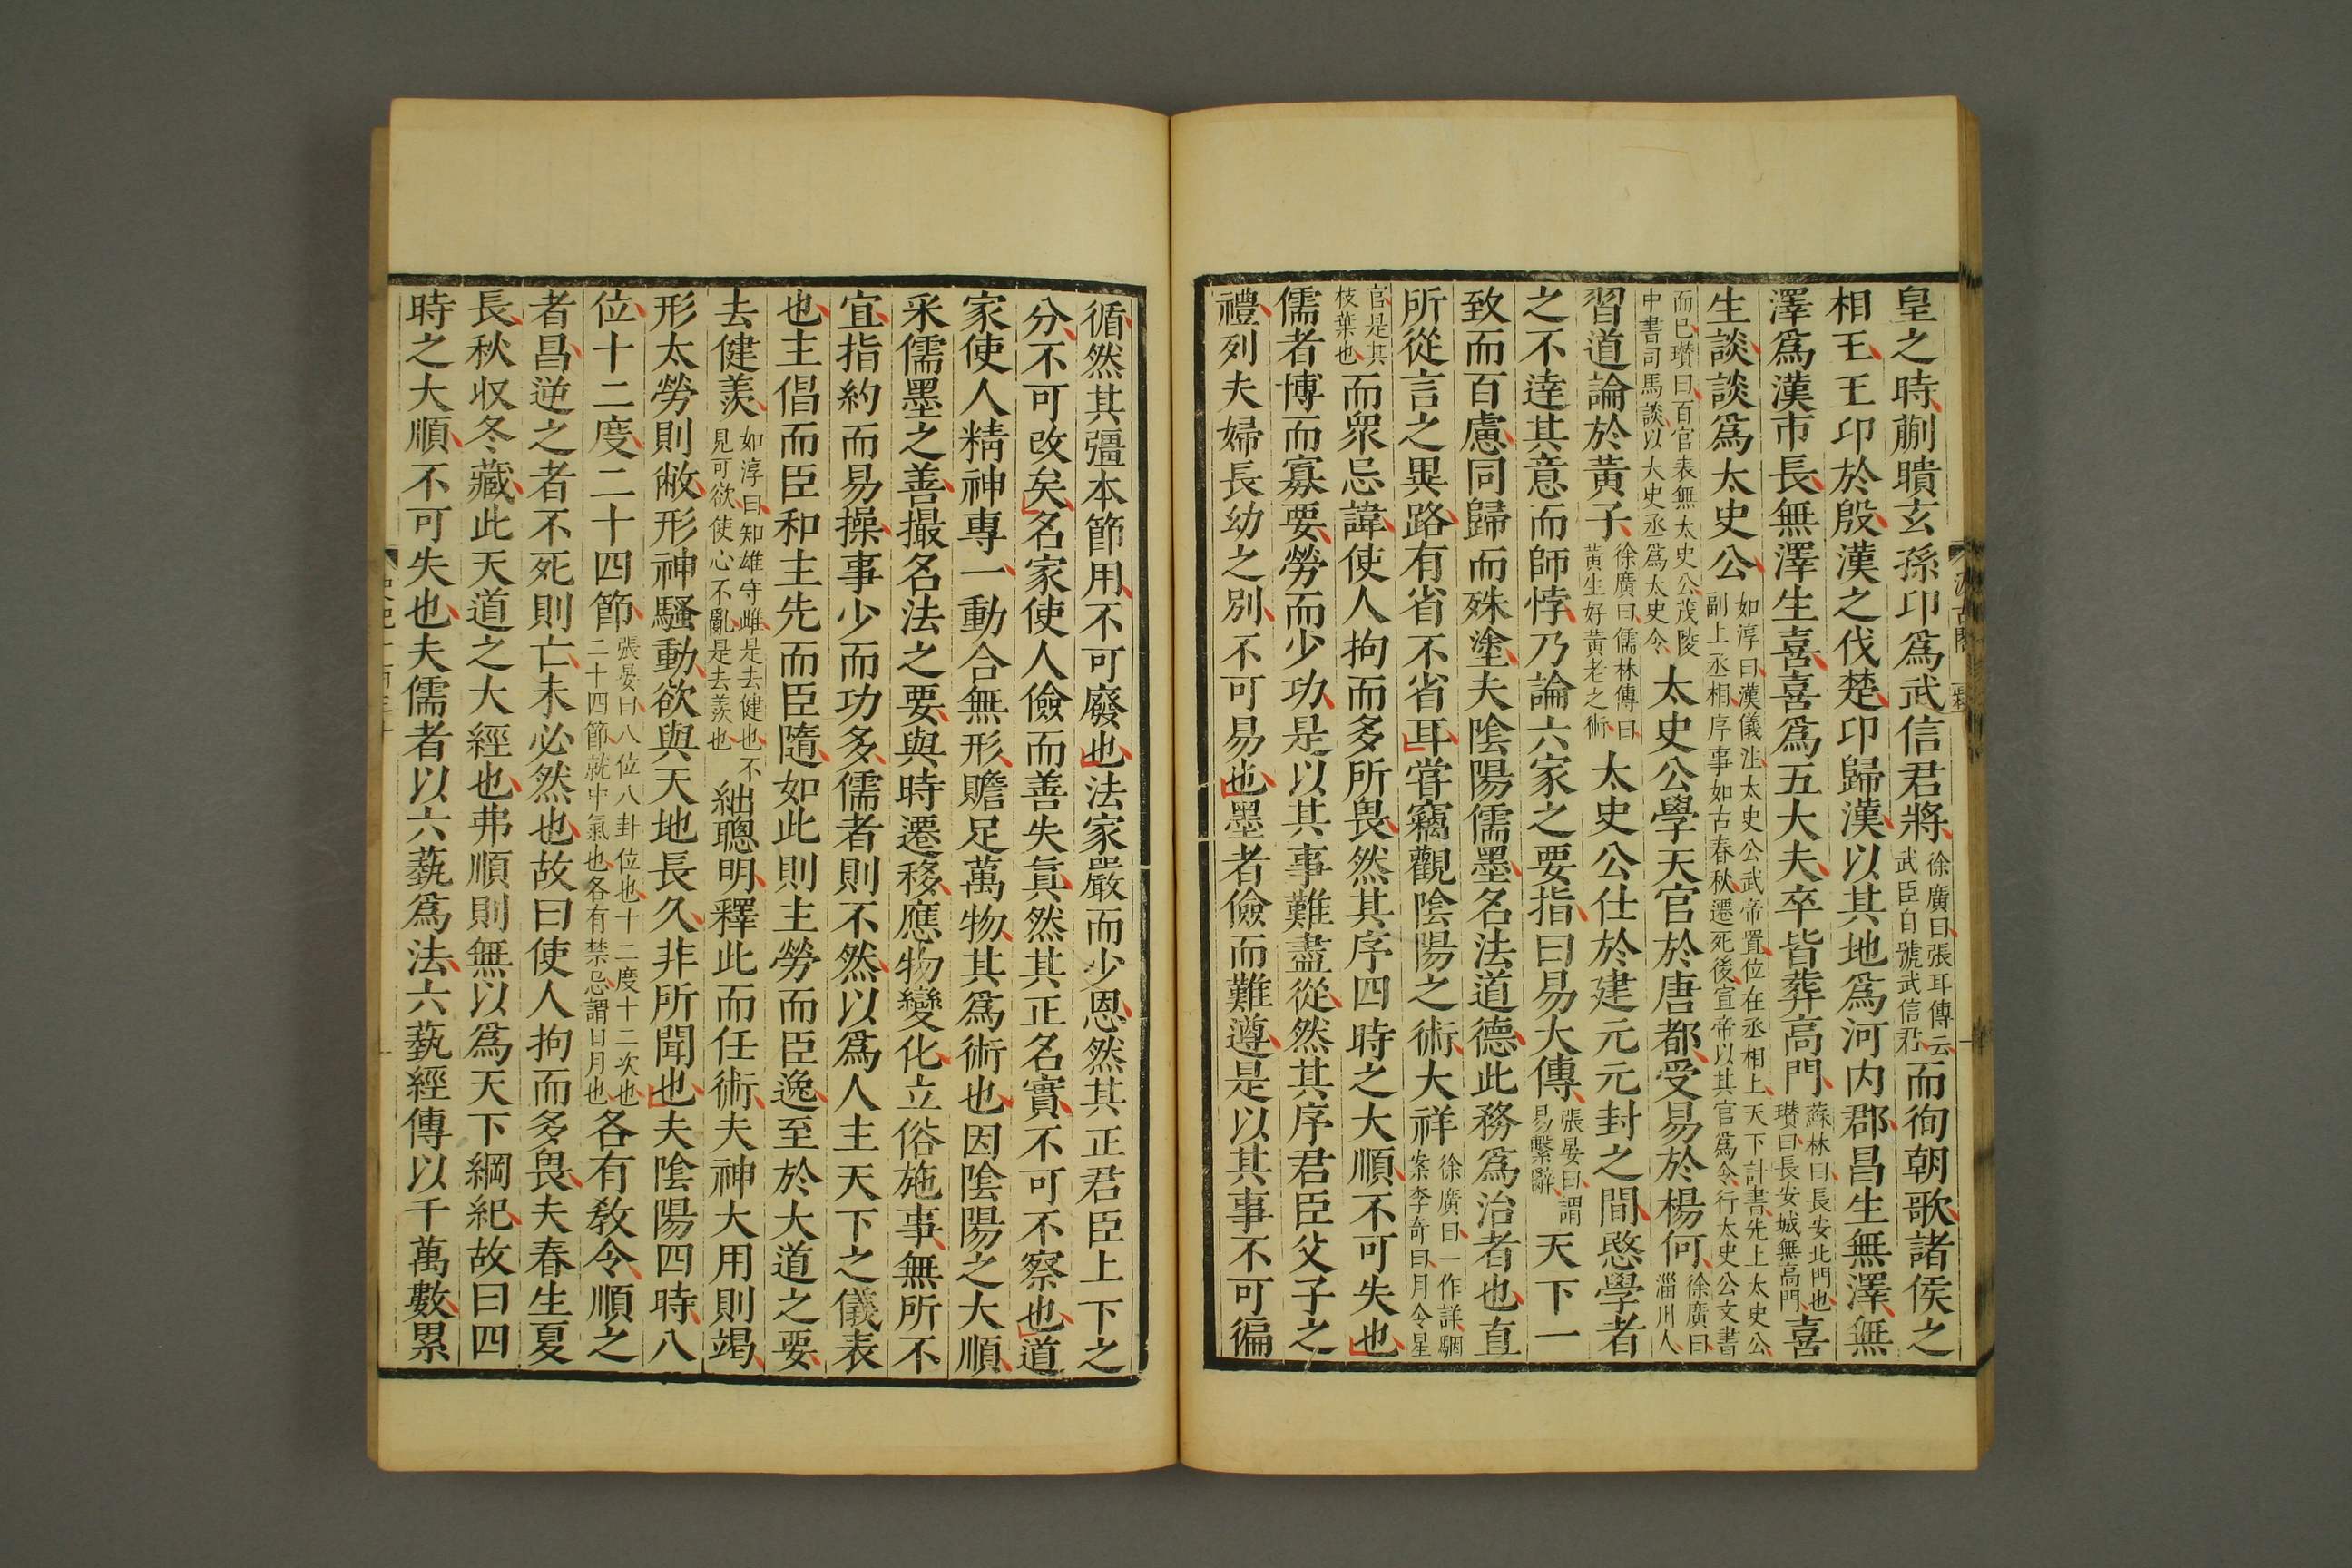 皇之時蒯聵玄孫卬爲武信君將徐廣曰張耳傳云武臣自號武信君而徇朝歌諸侯之
相王王卬於殷漢之伐楚卬歸漢以其地爲河内郡昌生無澤無
澤爲漢市長無澤生喜喜爲五大夫卒皆葬高門蘇林曰長安北門也瓚曰長安城無高門喜
生談談爲太史公如淳曰漢儀注太史公武帝置位在丞相上天下計書先上太史公副上丞相序事如古春秋遷死後宣帝以其官爲令行太史公文書
而已瓚曰百官表無太史公茂陵中書司馬談以大史丞爲太史令太史公學天官於唐都受易於楊何徐廣曰淄川人
習道論於黃子徐廣曰儒林傳曰黃生好黃老之術太史公仕於建元元封之間愍學者
之不達其意而師悖乃論六家之要指曰易大傳張晏曰謂易繫辭天下一
致而百慮同歸而殊塗夫陰陽儒墨名法道德此務爲治者也直
所從言之異路有省不省耳嘗竊觀陰陽之術大祥徐廣曰一作詳駰案李奇曰月令星
官是其枝葉也而眾忌諱使人拘而多所畏然其序四時之大順不可失也
儒者博而寡要勞而少功是以其事難盡從然其序君臣父子之
禮列夫婦長幼之別不可易也墨者儉而難遵是以其事不可徧
循然其彊本節用不可廢也法家嚴而少恩然其正君臣上下之
分不可改矣名家使人儉而善失眞然其正名實不可不察也道
家使人精神專一動合無形贍足萬物其爲術也因陰陽之大順
采儒墨之善撮名法之要與時遷移應物變化立俗施事無所不
宜指約而易操事少而功多儒者則不然以爲人主天下之儀表
也主倡而臣和主先而臣隨如此則主勞而臣逸至於大道之要
去健羨如淳曰知雄守雌是去健也不見可欲使心不亂是去羨也絀聰明釋此而任術夫神大用則竭
形太勞則敝形神騷動欲與天地長久非所聞也夫陰陽四時八
位十二度二十四節張晏曰八位八卦位也十二度十二次也二十四節就中氣也各有禁忌謂日月也各有敎令順之
者昌逆之者不死則亡未必然也故曰使人拘而多畏夫春生夏
長秋収冬藏此天道之大經也弗順則無以爲天下綱紀故曰四
時之大順不可失也夫儒者以六藝爲法六藝經傳以千萬數累